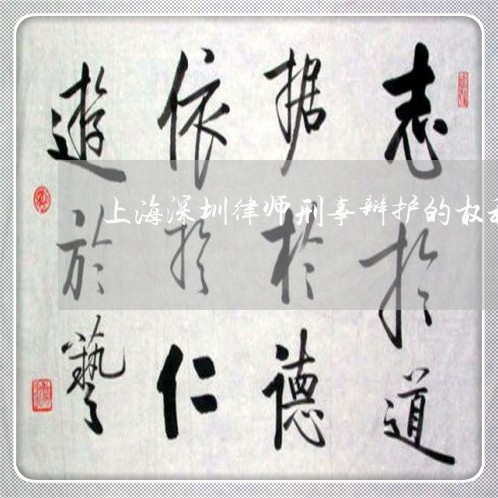 志於道
据於德
依於仁
遊於藝
上海深圳律师刑事辩护的权